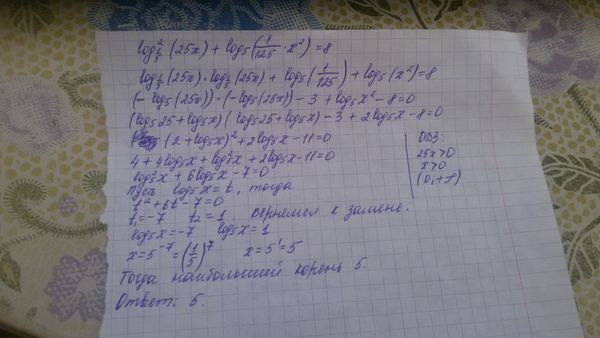 log²_{1/5} (25x) + log₅(1/125 · x²) = 8
log_{1/5}(25x) · log_{1/5}(25x) + log₅(1/125) + log₅(x²) = 8
(- log₅(25x)) · (- log₅(25x)) - 3 + log₅x² - 8 = 0
(log₅25 + log₅x)(log₅25 + log₅x) - 3 + 2log₅x - 8 = 0
(2 + log₅x)² + 2log₅x - 11 = 0
4 + 4log₅x + log₅²x + 2log₅x - 11 = 0
log₅²x + 6log₅x - 7 = 0
Пусть log₅x = t, тогда
t² + 6t - 7 = 0
t₁ = -7 t₂ = 1. Вернёмся к замене:
log₅x = -7 log₅x = 1
x = 5⁻⁷ = (1/5)⁷ x = 5¹ = 5
Тогда наибольший корень 5.
Ответ: 5.
ОДЗ:
25x > 0
x > 0
(0; +∞)